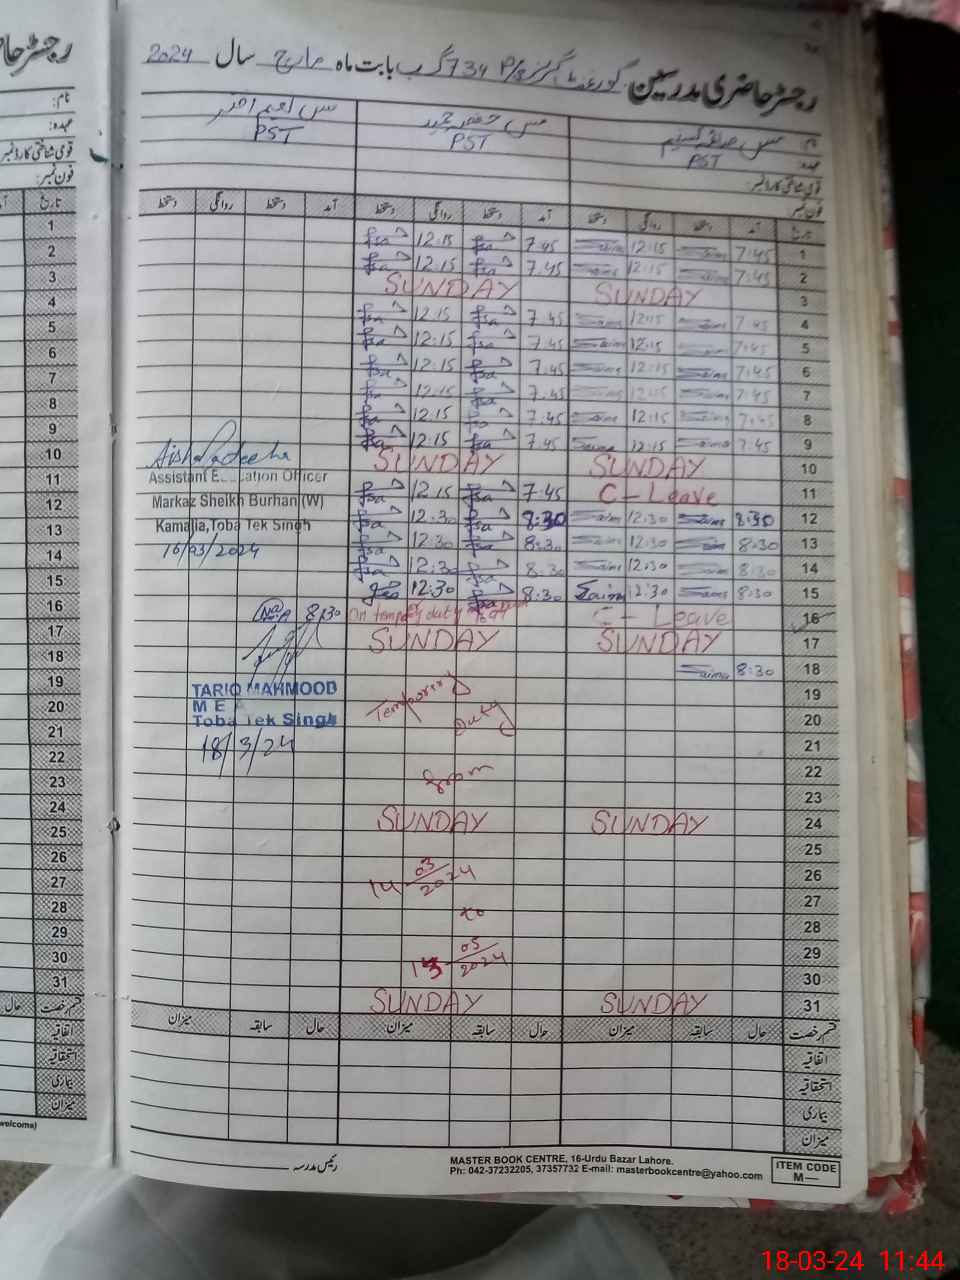 رجسٹر حاضری مدرسین گورنمنٹ گرلز P/S 734 گ ب بابت ماہ مارچ سال 2024
نام:
عہدہ: PST PST PST
قومی شناختی کارڈ نمبر:
فون نمبر:
تاریخ آمد دستخط روانگی دستخط آمد دستخط روانگی دستخط آمد دستخط روانگی دستخط
1 7:45 12:15 7.45 12:15
2 7:45 12:15 7.45 12:15
3 SUNDAY SUNDAY
4 7:45 12:15 7.45 12:15
5 7:45 12:15 7.45 12:15
6 7:45 12:15 7.45 12:15
7 7:45 12:15 7.45 12:15
8 7:45 12:15 7.45 12:15
9 7:45 12:15 7.45 12:15
10 SUNDAY SUNDAY
11 C-Leave 7.45 12:15
12 8:30 12:30 8:30 12:30
13 8:30 12:30 8:30 12:30
14 8:30 12:30 8:30 12:30
15 8:30 12:30 8:30 12:30
16 C-Leave On temp duty
17 SUNDAY SUNDAY
18 8:30
19
20
21
22
23
24 SUNDAY SUNDAY
25
26
27
28
29
30
31 SUNDAY SUNDAY
Temporary
Duty
from
14 03/2024
to
13 05/2024
Assistant Education Officer
Markaz Sheikh Burhan (W)
Kamalia,Toba Tek Singh
16/03/2024
8:30
TARIQ MAHMOOD
M E A
Toba Tek Singh
18/3/24
قسم رخصت حال سابقہ میزان حال سابقہ میزان حال سابقہ میزان
اتفاقیہ
استحقاقیہ
بیماری
میزان
رئیس مدرسہ
MASTER BOOK CENTRE, 16-Urdu Bazar Lahore.
Ph: 042-37232205, 37357732 E-mail: masterbookcentre@yahoo.com
ITEM CODE
M—
رجسٹر حا
نام:
عہدہ:
قومی شناختی کارڈ نمبر
فون نمبر:
تاریخ
1
2
3
4
5
6
7
8
9
10
11
12
13
14
15
16
17
18
19
20
21
22
23
24
25
26
27
28
29
30
31
قسم رخصت حال
اتفاقیہ
استحقاقیہ
بیماری
میزان
welcome)
18-03-24 11:44